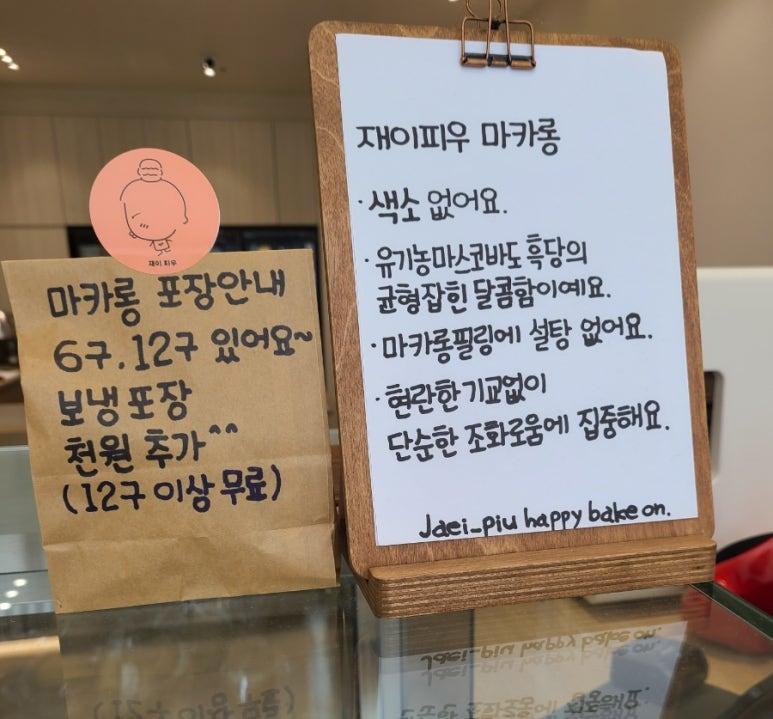 재이 피우
마카롱 포장안내
6구, 12구 있어요~
보냉 포장
천원 추가^^
(12구 이상 무료)
재이피우 마카롱
· 색소 없어요.
· 유기농마스코바도 흑당의
균형잡힌 달콤함이예요.
· 마카롱필링에 설탕 없어요.
· 현란한 기교없이
단순한 조화로움에 집중해요.
Jaei_piu happy bake on.